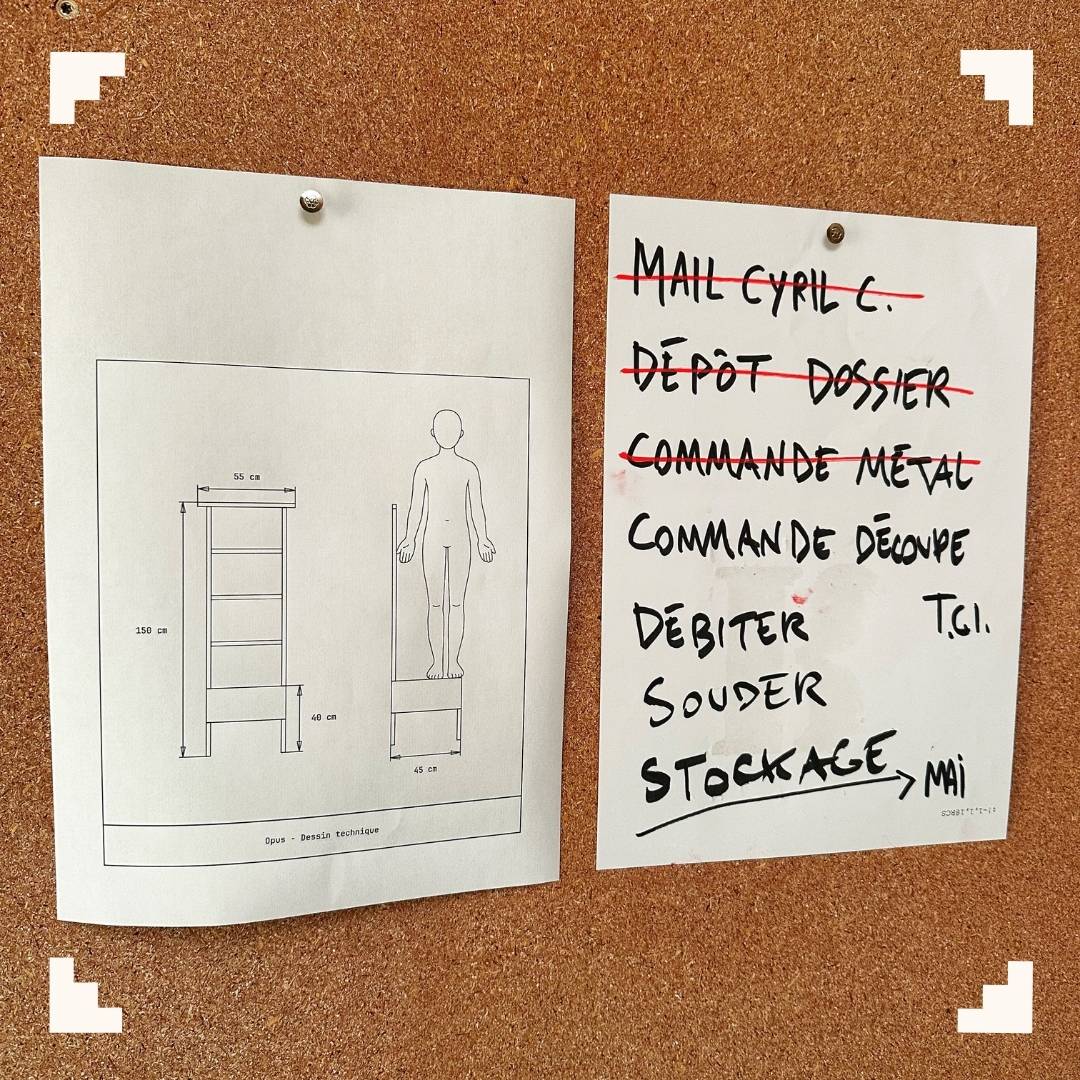 55 cm
150 cm
40 cm
45 cm
Opus - Dessin technique
MAIL CYRIL C.
DÉPÔT DOSSIER
COMMANDE MÉTAL
COMMANDE DÉCOUPE
T.C.I.
DÉBITER
SOUDER
STOCKAGE → MAi